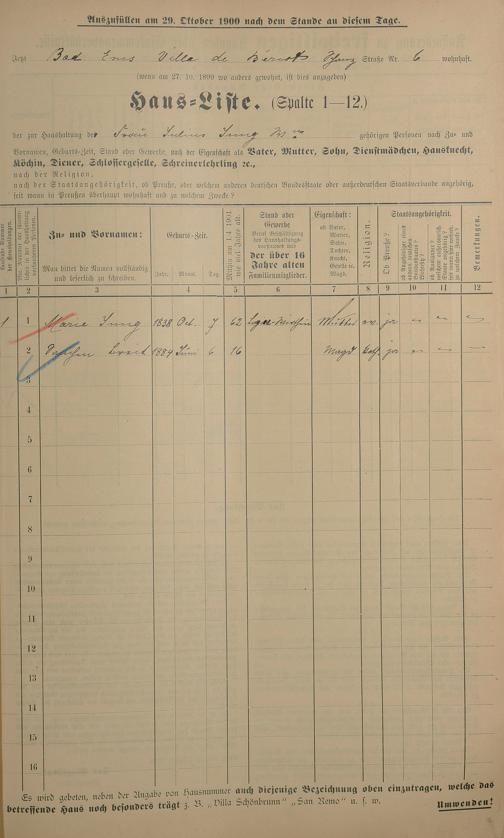 Auszufüllen am 29. Oktober 1900 nach dem Stande an diesem Tage.
Jetzt Bad Ems Villa de Straße Nr. 6 wohnhaft.
(wenn am 27. 10. 1899 wo anders gewohnt, ist dies anzugeben)
Haus=Liste. (Spalte 1—12.)
der zur Haushaltung der Frau Julius Jung Wwe gehörigen Personen nach Zu= und
Vornamen, Geburts=Zeit, Stand oder Gewerbe, nach der Eigenschaft als Vater, Mutter, Sohn, Dienstmädchen, Hausknecht,
Köchin, Diener, Schlossergeselle, Schreinerlehrling ꝛc.,
nach der Religion,
nach der Staatsangehörigkeit, ob Preuße, oder welchem anderen deutschen Bundesstaate oder außerdeutschen Staatsverbande angehörig,
seit wann in Preußen überhaupt wohnhaft und zu welchem Zwecke?
Zu= und Vornamen:
Man bittet die Namen vollständig
und leserlich zu schreiben.
Geburts=Zeit.
Jahr. Monat. Tag.
Stand oder
Gewerbe
der über 16
Jahre alten
Familienmitglieder.
Eigenschaft:
ob Vater,
Mutter,
Sohn,
Tochter,
Knecht,
Geselle u.
Magd.
Religion.
Staatsangehörigkeit.
Ob Preuße?
Bemerkungen.
1 2 3 4 5 6 7 8 9 10 11 12
1 1 Marie Jung 1838 Oct. 7 62 Mutter ev. ja — — —
2 1884 Juni 6 16 Magd ja — — —
3
4
5
6
7
8
9
10
11
12
13
14
15
16
Es wird gebeten, neben der Angabe von Hausnummer auch diejenige Bezeichnung oben einzutragen, welche das
betreffende Haus noch besonders trägt z. B. „Villa Schönbrunn" „San Remo" u. s. w.
Umwenden!